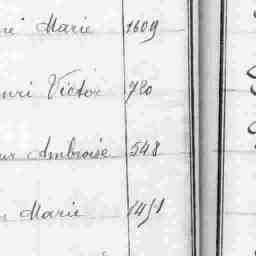 Marie 1609
Victor 720
Ambroise 548
Marie 1451